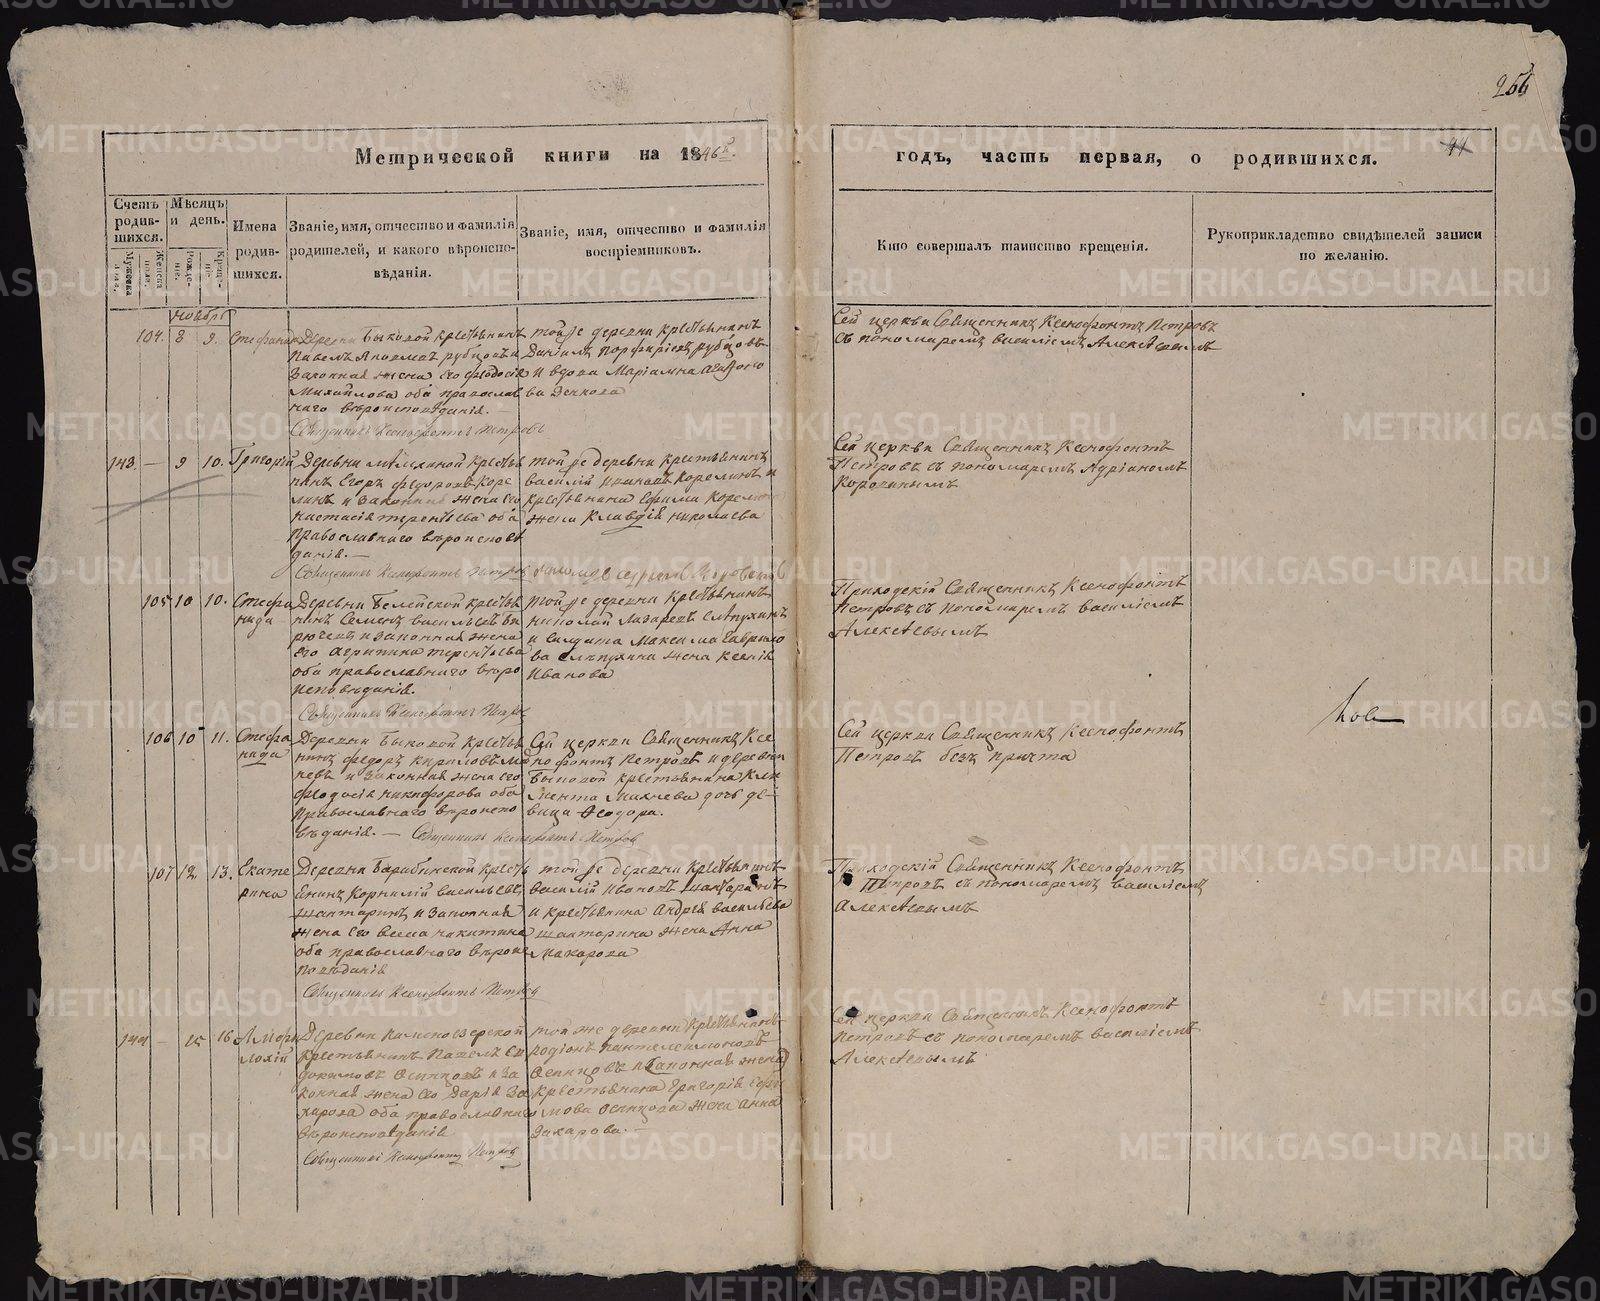 256
44
Метрической книги на 1846й.
годъ, часть первая, о родившихся.
Счетъ родив-шихся.
Мѣсяцъ и день.
Мужеска
Женска пола.
Рожде-ніе.
Креще-ніе.
Имена родив-шихся.
Званіе, имя, отчество и фамилія
родителей, и какого вѣроиспо-
вѣданія.
Званіе, имя, отчество и фамилія
воспріемниковъ.
Кто совершалъ таинство крещенія.
Рукоприкладство свидѣтелей записи
по желанію.
Ноябрь
104. 8 9. Стефанида
Деревни Быковой крестьянинъ
Павелъ Яковлевъ Рубцовъ и
Законная жена его Феодосія
Михайлова оба православ
наго вѣроисповѣданія.
Священникъ Ксенофонтъ Петровъ
той же деревни крестьянинъ
Даніилъ Порфирьевъ Рубцовъ
и вдова Маріамна
Сей церкви Священникъ Ксенофонтъ Петровъ
съ пономаремъ Василіемъ Алексѣевымъ
143. — 9 10. Григорій
Деревни крестья
нинъ Егоръ Федоровъ Коре
линъ и законная жена его
Настасія Терентьева оба
Православнаго вѣроисповѣ
данія. —
Священникъ Ксенофонтъ Петровъ
той же деревни крестьянинъ
Василій Ивановъ Корелинъ и
крестьянина Ефима Корелина
жена Клавдія Николаева
Сей церкви Священникъ Ксенофонтъ
Петровъ съ пономаремъ Адріаномъ
Коровинымъ
105 10 10. Стефа
нида
Деревни Белейской крестья
нинъ Семенъ Васильевъ Би
рюковъ и законная жена
его Агрипина Терентьева
оба православнаго вѣро
исповѣданія.
Священникъ Ксенофонтъ Петровъ
той же деревни крестьянинъ
Николай Лазаревъ Слѣпухинъ
и Солдата Максима Гаврило
ва Слѣпухина жена Ксенія
Иванова
Приходскій Священникъ Ксенофонтъ
Петровъ съ пономаремъ Василіемъ
Алексѣевымъ
106 10 11. Стефа
нида
Деревни Быковой крестья
нинъ Федоръ Кириловъ Мих
невъ и Законная жена его
Феодосія Никифорова оба
Православнаго вѣроиспо
вѣданія. — Священникъ Ксенофонтъ Петровъ
Сей церкви Священникъ Ксе
нофонтъ Петровъ и деревни
Быковой крестьянина Кли
мента Михнева дочь дѣ-
вица Феодора.
Сей церкви Священникъ Ксенофонтъ
Петровъ безъ причта
107 12. 13. Екате
рина
Деревни Барабинской кресть
янинъ Корнилій Васильевъ
Шантаринъ и Законная
жена его Васса Никитина
оба православнаго вѣроис
повѣданія
Священникъ Ксенофонтъ Петровъ
той же деревни крестьянинъ
Василій Ивановъ Шантаринъ
и крестьянина Андрея Васильева
Шантарина жена Анна
Макарова
Приходскій Священникъ Ксенофонтъ
Петровъ съ пономаремъ Василіемъ
Алексѣевымъ
144 — 15 16 Амфи
лохій
Деревни Каменоозерской
крестьянинъ Павелъ Ев
докимовъ Осинцовъ и за
конная жена его Дарія За
харова оба православнаго
вѣроисповѣданія
Священникъ Ксенофонтъ Петровъ
той же деревни крестьянинъ
Родіонъ Пантелеимоновъ
Осинцовъ и законная жена
крестьянина Григорія Ефи
мова Осинцова жена Анна
Захарова. —
Сей церкви Священникъ Ксенофонтъ
Петровъ съ пономаремъ Василіемъ
Алексѣевымъ